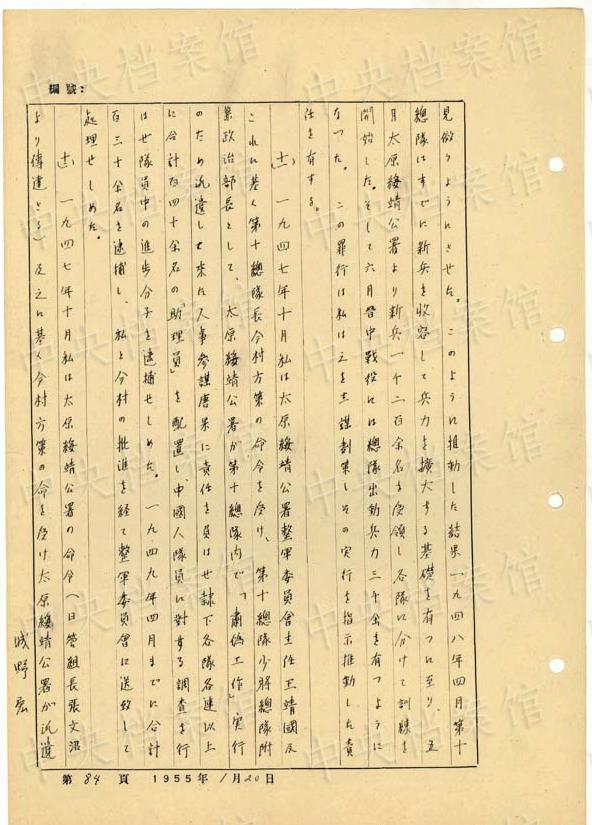 編號：
見做うようにさせた。このように推動した結果一九四八年四月第十
總隊はすでに新兵を收容して兵力を擴大する基礎を有つに至り、五
月太原綏靖公署より新兵一千二百余名を受領し各隊に分けて訓練を
開始した。そして六月晉中戰役には總隊出動兵力三千余を有つように
なつた。この罪行は私は之を主謀劃策しその実行を指示推動した責
任を有する。
一九四七年十月私は太原綏靖公署整軍委員會主任王靖國及
これに基く第十總隊長今村方策の命令を受け、第十總隊少將總隊附
兼政治部長として、太原綏靖公署が第十總隊内で「肅僞工作」実行
のため派遣して来た人事參謀唐果に責任を負はせ隷下各隊各連以上
に合計百四十余名の「助理員」を配置し、中國人隊員に對する調査を行
はせ隊員中の進步分子を逮捕せしめた。一九四九年四月までに合計
百三十余名を逮捕し、私と今村の批准を経て整軍委員會に送致して
処理せしめた。
一九四七年十月私は太原綏靖公署の命令（日管組長張文沼
より傳達さる）及之に基く今村方策の命を受け太原綏靖公署が派遣
城野宏
第84頁 1955年1月20日
中央档案馆